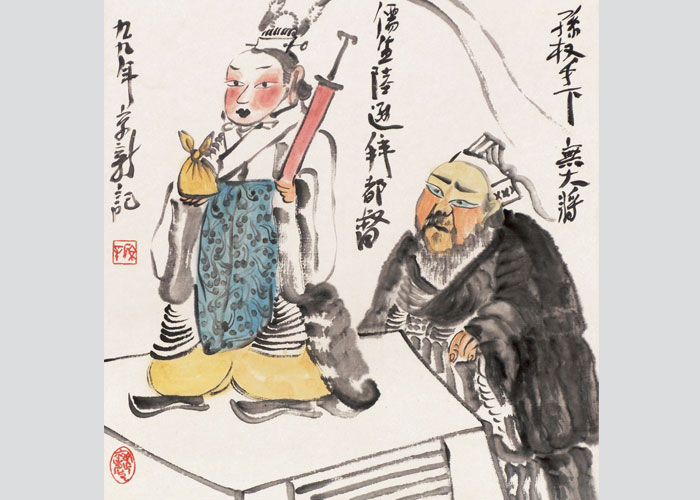 孫权手下無大将
儒生陸遜拜都督
九九年京新記